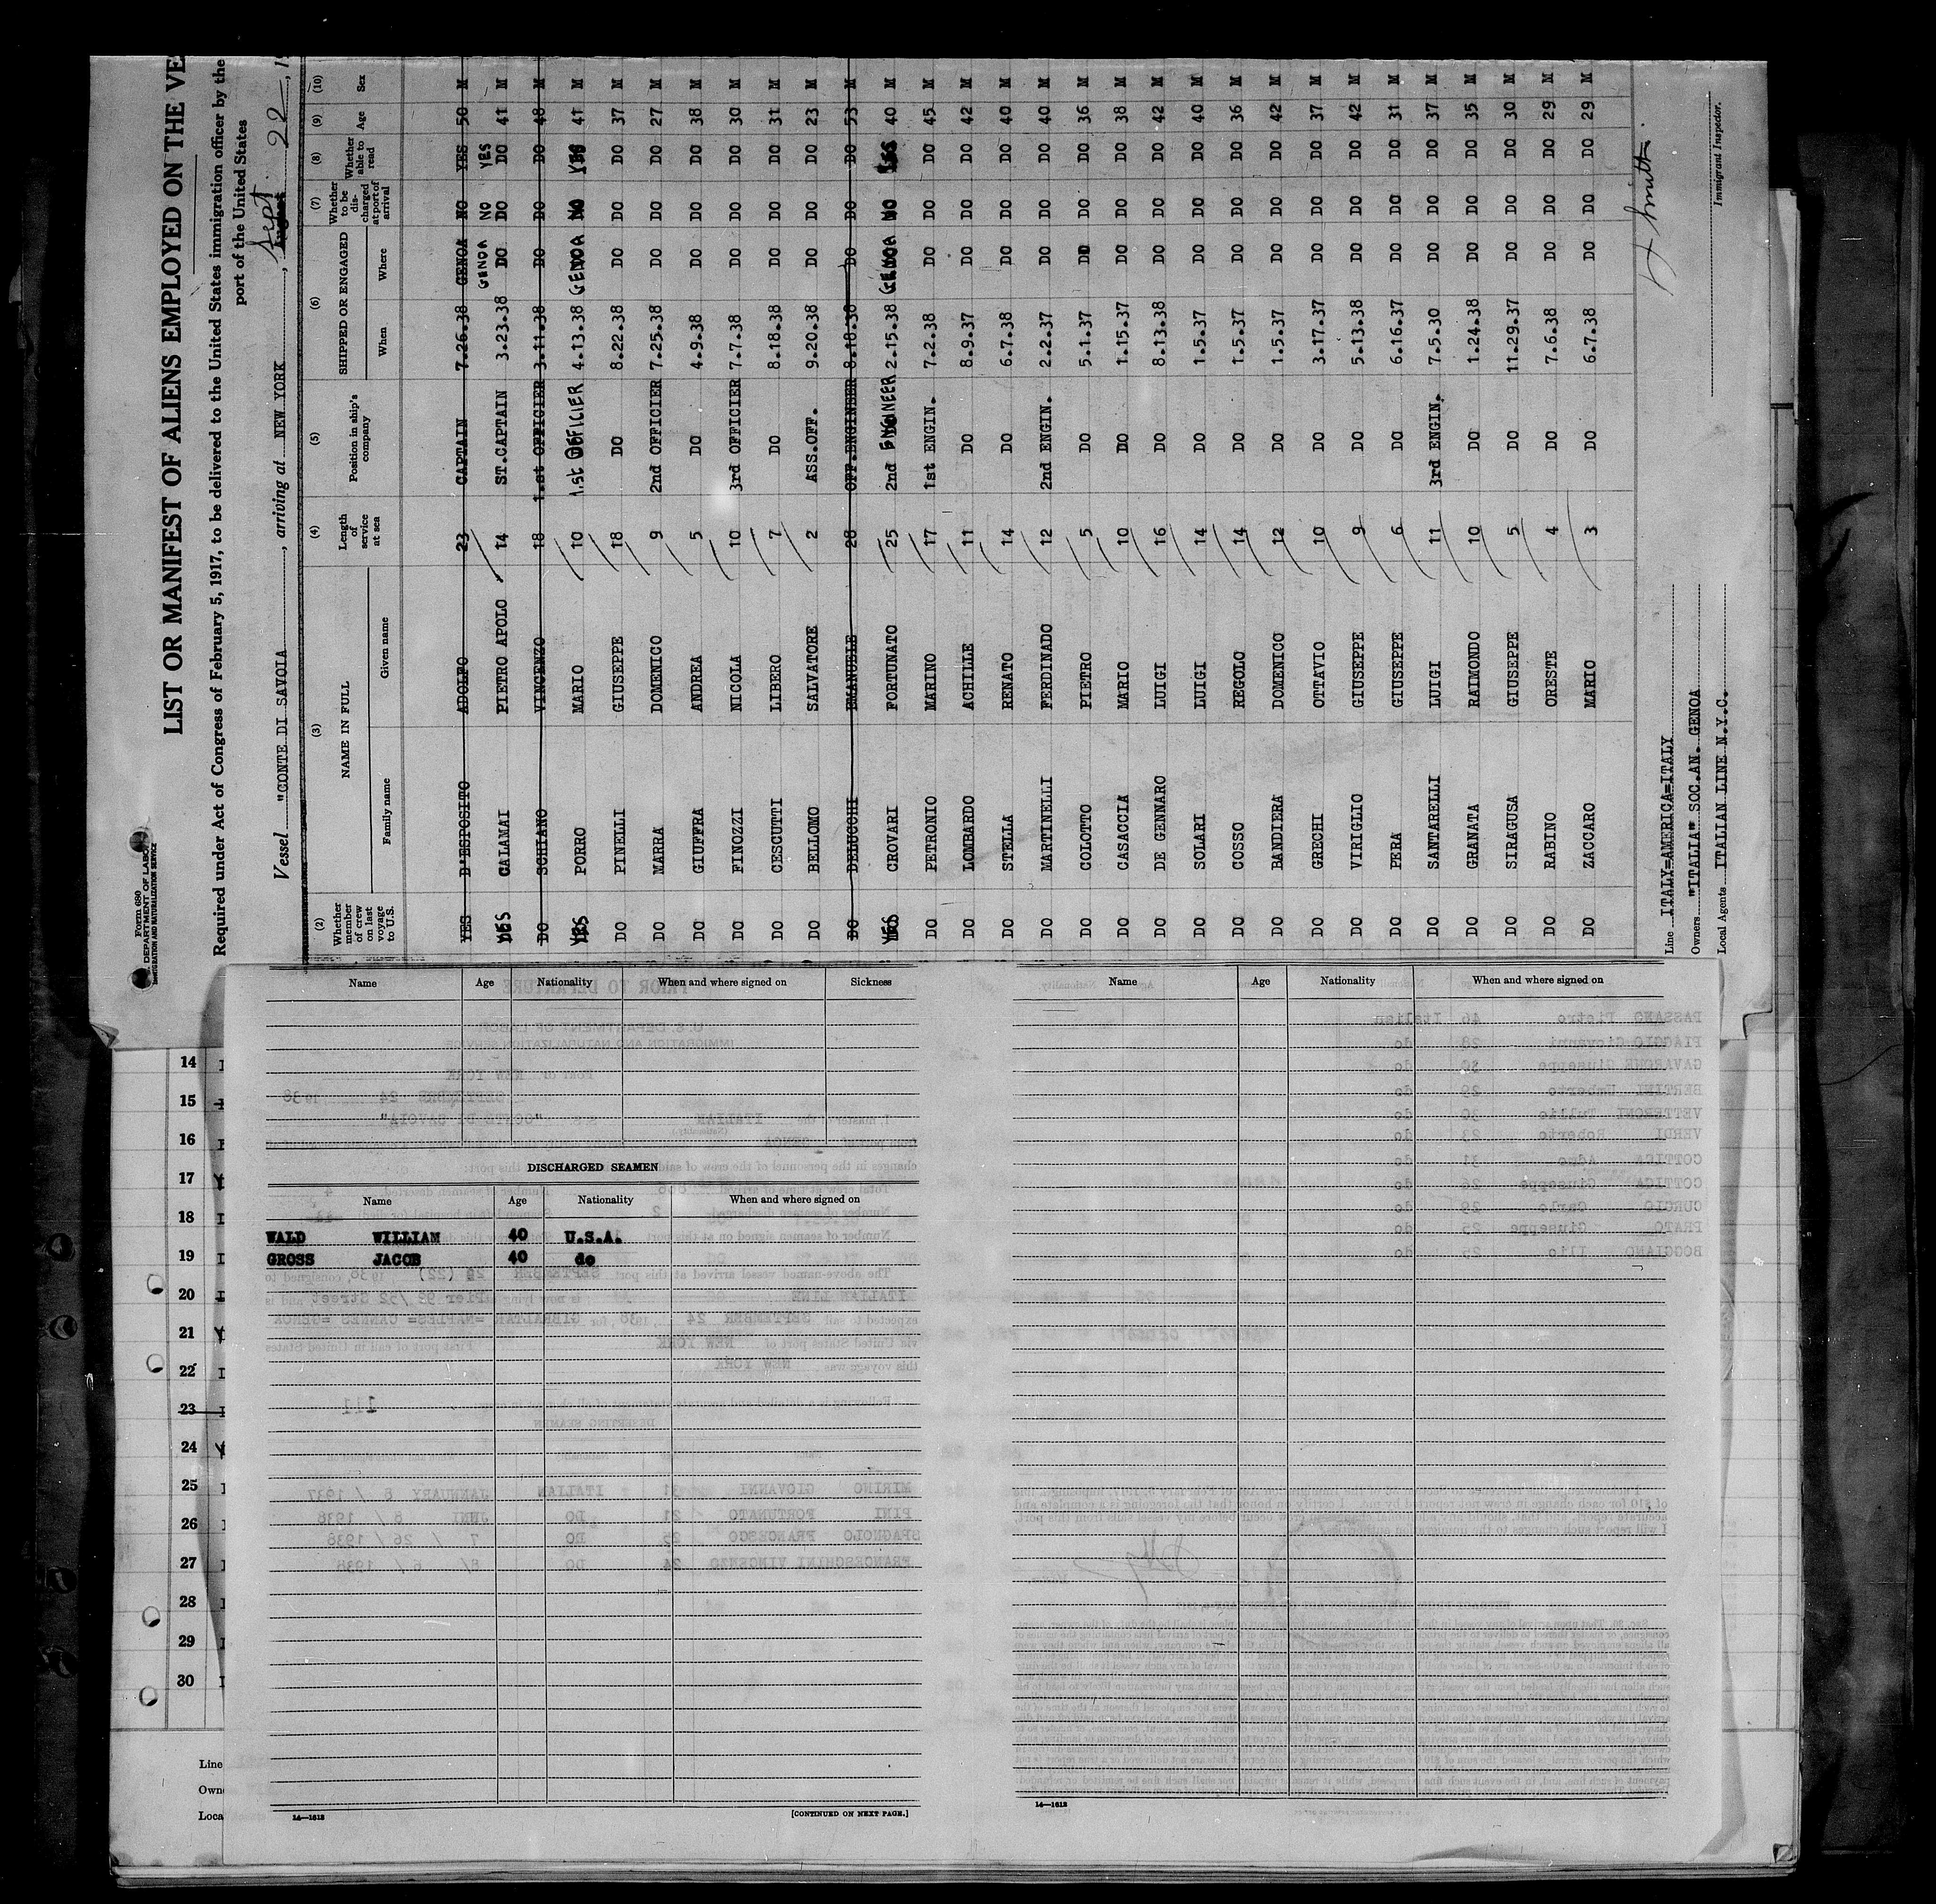 Form 680
U.S. DEPARTMENT OF LABOR
IMMIGRATION AND NATURALIZATION SERVICE
LIST OR MANIFEST OF ALIENS EMPLOYED ON THE VE
Required under Act of Congress of February 5, 1917, to be delivered to the United States immigration officer by the
port of the United States
Vessel "CONTE DI SAVOIA , arriving at NEW YORK , Sept 22 , 19
(2) (3) (4) (5) (6) (7) (8) (9) (10)
Whether member of crew on last voyage to U.S. NAME IN FULL Length of service at sea Position in ship's company SHIPPED OR ENGAGED Whether to be discharged at port of arrival Whether able to read Age Sex
Family name Given name When Where
YES D'ESPOSITO ADOLFO 23 CAPTAIN 7.26.38 GENOA NO YES 50 M
YES CALAMAI PIETRO APOLO 14 ST.CAPTAIN 3.23.38 DO GENOA DO NO DO YES 41 M
DO SCHIANO VINCENZO 18 1.st OFFICIER 3.11.38 DO DO DO 48 M
YES PORRO MARIO 10 1.st OFFICIER 4.13.38 GENOA NO YES 41 M
DO PINELLI GIUSEPPE 18 DO 8.22.38 DO DO DO 37 M
DO MARRA DOMENICO 9 2nd OFFICIER 7.25.38 DO DO DO 27 M
DO GIUFFRA ANDREA 5 DO 4.9.38 DO DO DO 38 M
DO FINOZZI NICOLA 10 3rd OFFICIER 7.7.38 DO DO DO 30 M
DO CESCUTTI LIBERO 7 DO 8.18.38 DO DO DO 31 M
DO BELLOMO SALVATORE 2 ASS.OFF. 9.20.38 DO DO DO 23 M
DO DELUCCHI EMANUELE 28 OFF.ENGINEER 8.18.38 DO DO DO 53 M
YES CROVARI FORTUNATO 25 2nd ENGINEER 2.15.38 GENOA NO YES 40 M
DO PETRONIO MARINO 17 1st ENGIN. 7.2.38 DO DO DO 45 M
DO LOMBARDO ACHILLE 11 DO 8.9.37 DO DO DO 42 M
DO STELLA RENATO 14 DO 6.7.38 DO DO DO 40 M
DO MARTINELLI FERDINADO 12 2nd ENGIN. 2.2.37 DO DO DO 40 M
DO COLOTTO PIETRO 5 DO 5.1.37 DO DO DO 36 M
DO CASACCIA MARIO 10 DO 1.15.37 DO DO DO 38 M
DO DE GENNARO LUIGI 16 DO 8.13.38 DO DO DO 42 M
DO SOLARI LUIGI 14 DO 1.5.37 DO DO DO 40 M
DO COSSO REGOLO 14 DO 1.5.37 DO DO DO 36 M
DO BANDIERA DOMENICO 12 DO 1.5.37 DO DO DO 42 M
DO GRECHI OTTAVIO 10 DO 3.17.37 DO DO DO 37 M
DO VIRIGLIO GIUSEPPE 9 DO 5.13.38 DO DO DO 42 M
DO PERA GIUSEPPE 6 DO 6.16.37 DO DO DO 31 M
DO SANTARELLI LUIGI 11 3rd ENGIN. 7.5.30 DO DO DO 37 M
DO GRANATA RAIMONDO 10 DO 1.24.38 DO DO DO 35 M
DO SIRAGUSA GIUSEPPE 5 DO 11.29.37 DO DO DO 30 M
DO RABINO ORESTE 4 DO 7.6.38 DO DO DO 29 M
DO ZACCARO MARIO 3 DO 6.7.38 DO DO DO 29 M
Line ITALY=AMERICA=ITALY
Owners "ITALIA" SOC.AN. GENOA
Local Agents ITALIAN LINE N.Y.C.
Smith
Immigrant Inspector.
Name Age Nationality When and where signed on Sickness
DISCHARGED SEAMEN
Name Age Nationality When and where signed on
WALD WILLIAM 40 U.S.A.
GROSS JACOB 40 do
14—1612
[CONTINUED ON NEXT PAGE.]
Name Age Nationality When and where signed on
14—1612
14
15
16
17
18
19
20
21
22
23
24
25
26
27
28
29
30
Line
Own
Loca